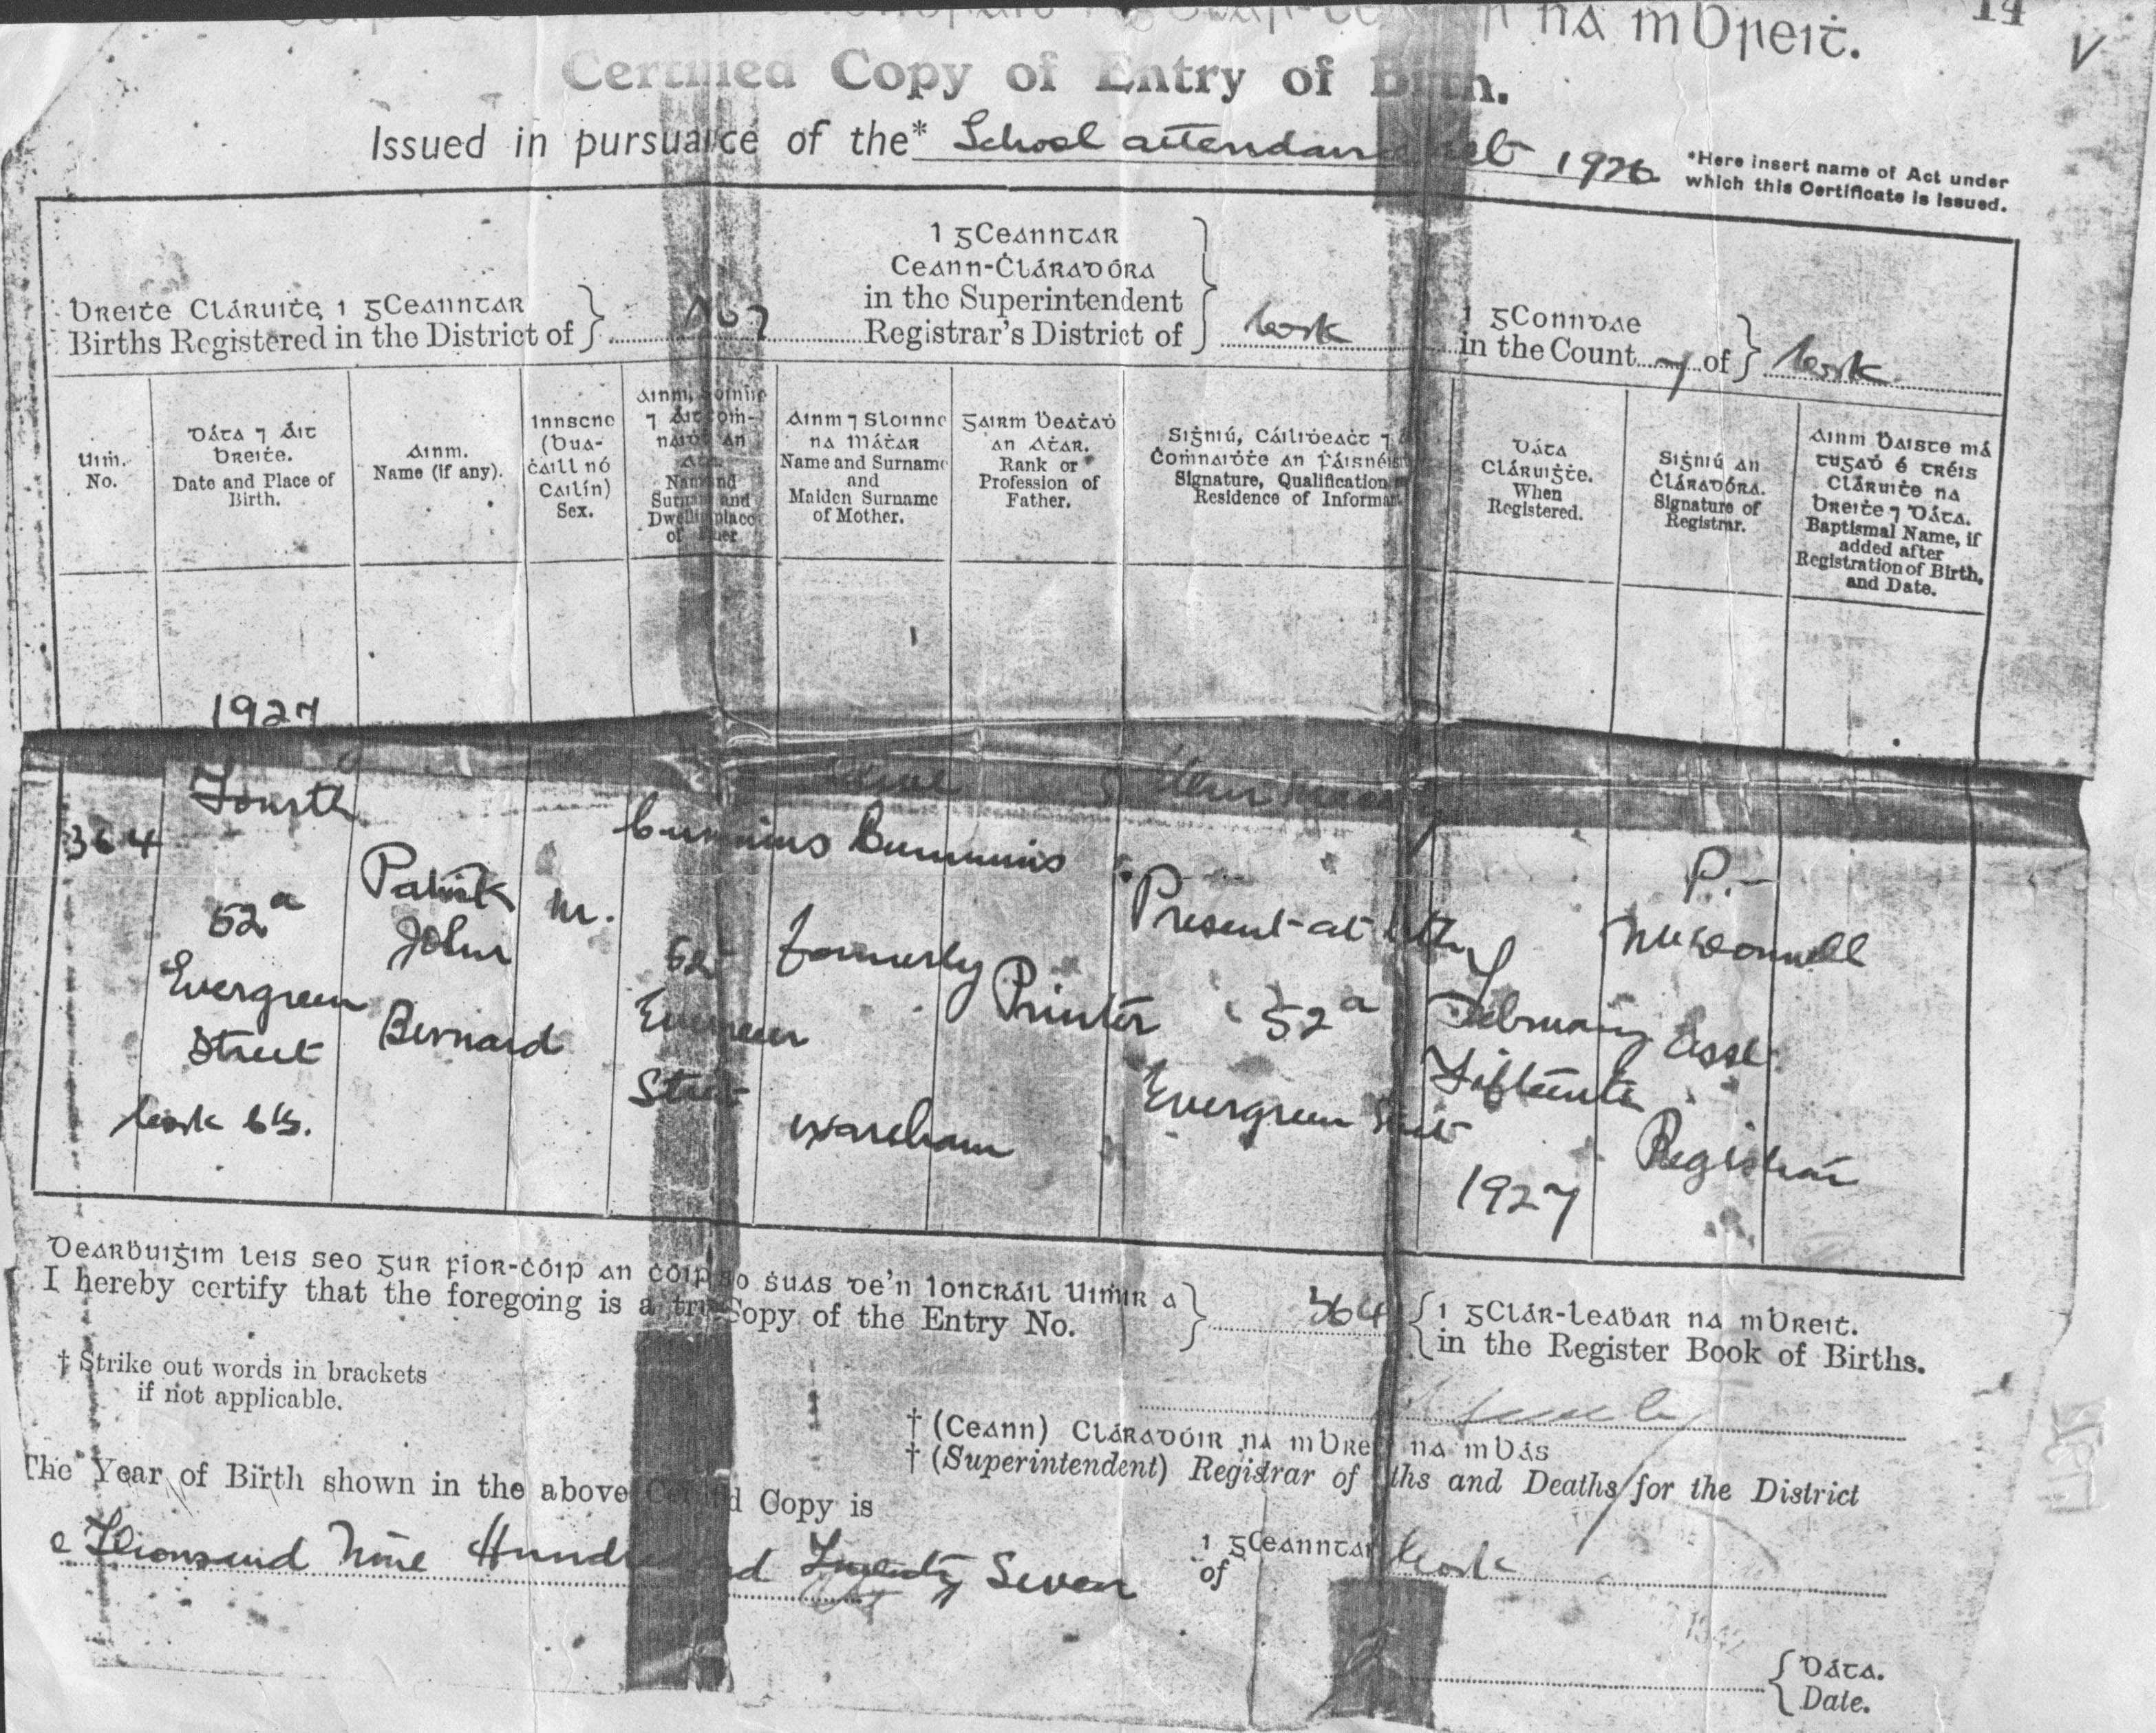 na mBreiṫ.
14
V
Certified Copy of Entry of Birth.
Issued in pursuance of the* School attendance act 1926
*Here insert name of Act under
which this Certificate is Issued.
Breiṫe Cláruiṫe i gCeanntar
Births Registered in the District of
i gCeanntar
Ceann-Ċláraḋóra
in the Superintendent
Registrar's District of
Cork
i gConndae
in the County of
Cork
Uiṁ.
No.
Dáta ⁊ Áit
Breiṫe.
Date and Place of
Birth.
Ainm.
Name (if any).
Innscne
(Bua-
ċaill nó
Cailín)
Sex.
Ainm, Sloinne
⁊ Áit Ċoṁ-
naiḋṫe an
Aṫar
Name and
Surname and
Dwelling-place
of Father
Ainm ⁊ Sloinne
na Máṫar
Name and Surname
and
Maiden Surname
of Mother.
Gairm Ḃeaṫaḋ
an Aṫar.
Rank or
Profession of
Father.
Siġniú, Cáiliḋeaċt ⁊
Ċoṁnaiḋṫe an Ḟáisnéis
Signature, Qualification
Residence of Informant
Dáta
Cláruiġṫe.
When
Registered.
Siġniú an
Ċláraḋóra.
Signature of
Registrar.
Ainm Baiste má
tugaḋ é tréis
Cláruiṫe na
Breiṫe ⁊ Dáta.
Baptismal Name, if
added after
Registration of Birth,
and Date.
1927
364
Fourth
52a
Evergreen
Street
Cork
Patrick
John
Bernard
M.
Cummins
52
Evergreen
Street
Cummins
formerly
Wareham
Printer
Present at birth
52a
Evergreen Street
February
Fifteenth
1927
P.
McDonnell
Asst.
Registrar
Dearḃuiġim leis seo gur fíor-ċóip an ċóip so ṡuas de'n Iontráil Uiṁir a
I hereby certify that the foregoing is a true Copy of the Entry No.
364
i gClár-leaḃar na mBreiṫ.
in the Register Book of Births.
† Strike out words in brackets
if not applicable.
† (Ceann) Cláraḋóir na mBreiṫ na mBás
† (Superintendent) Registrar of Births and Deaths for the District
The Year of Birth shown in the above Certified Copy is
e Thousand Nine Hundred and Twenty Seven
i gCeanntar
of
Cork
Dáta.
Date.